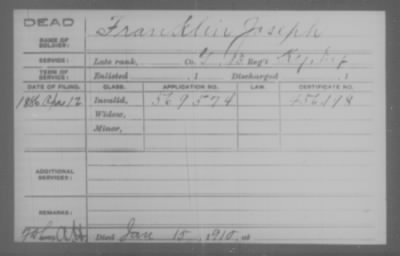 DEAD
NAME OF SOLDIER: Franklin Joseph
SERVICE: Late rank, Co. G, 13 Reg't Ky. Inf
TERM OF SERVICE: Enlisted , 1 Discharged , 1
DATE OF FILING. CLASS. APPLICATION NO. LAW. CERTIFICATE NO.
1886 Apr 12 Invalid, 569574 456498
Widow,
Minor,
ADDITIONAL SERVICES:
REMARKS:
Died Jan 15, 1910, at